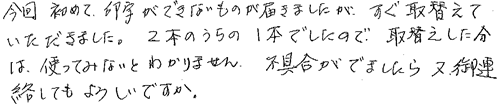 今回 初めて、印字ができないものが届きましたが、すぐ取替えて
いただきました。2本のうちの1本でしたので 取替えした分
は、使ってみないとわかりません。不具合がでましたら 又、御連
絡してもよろしいですか。